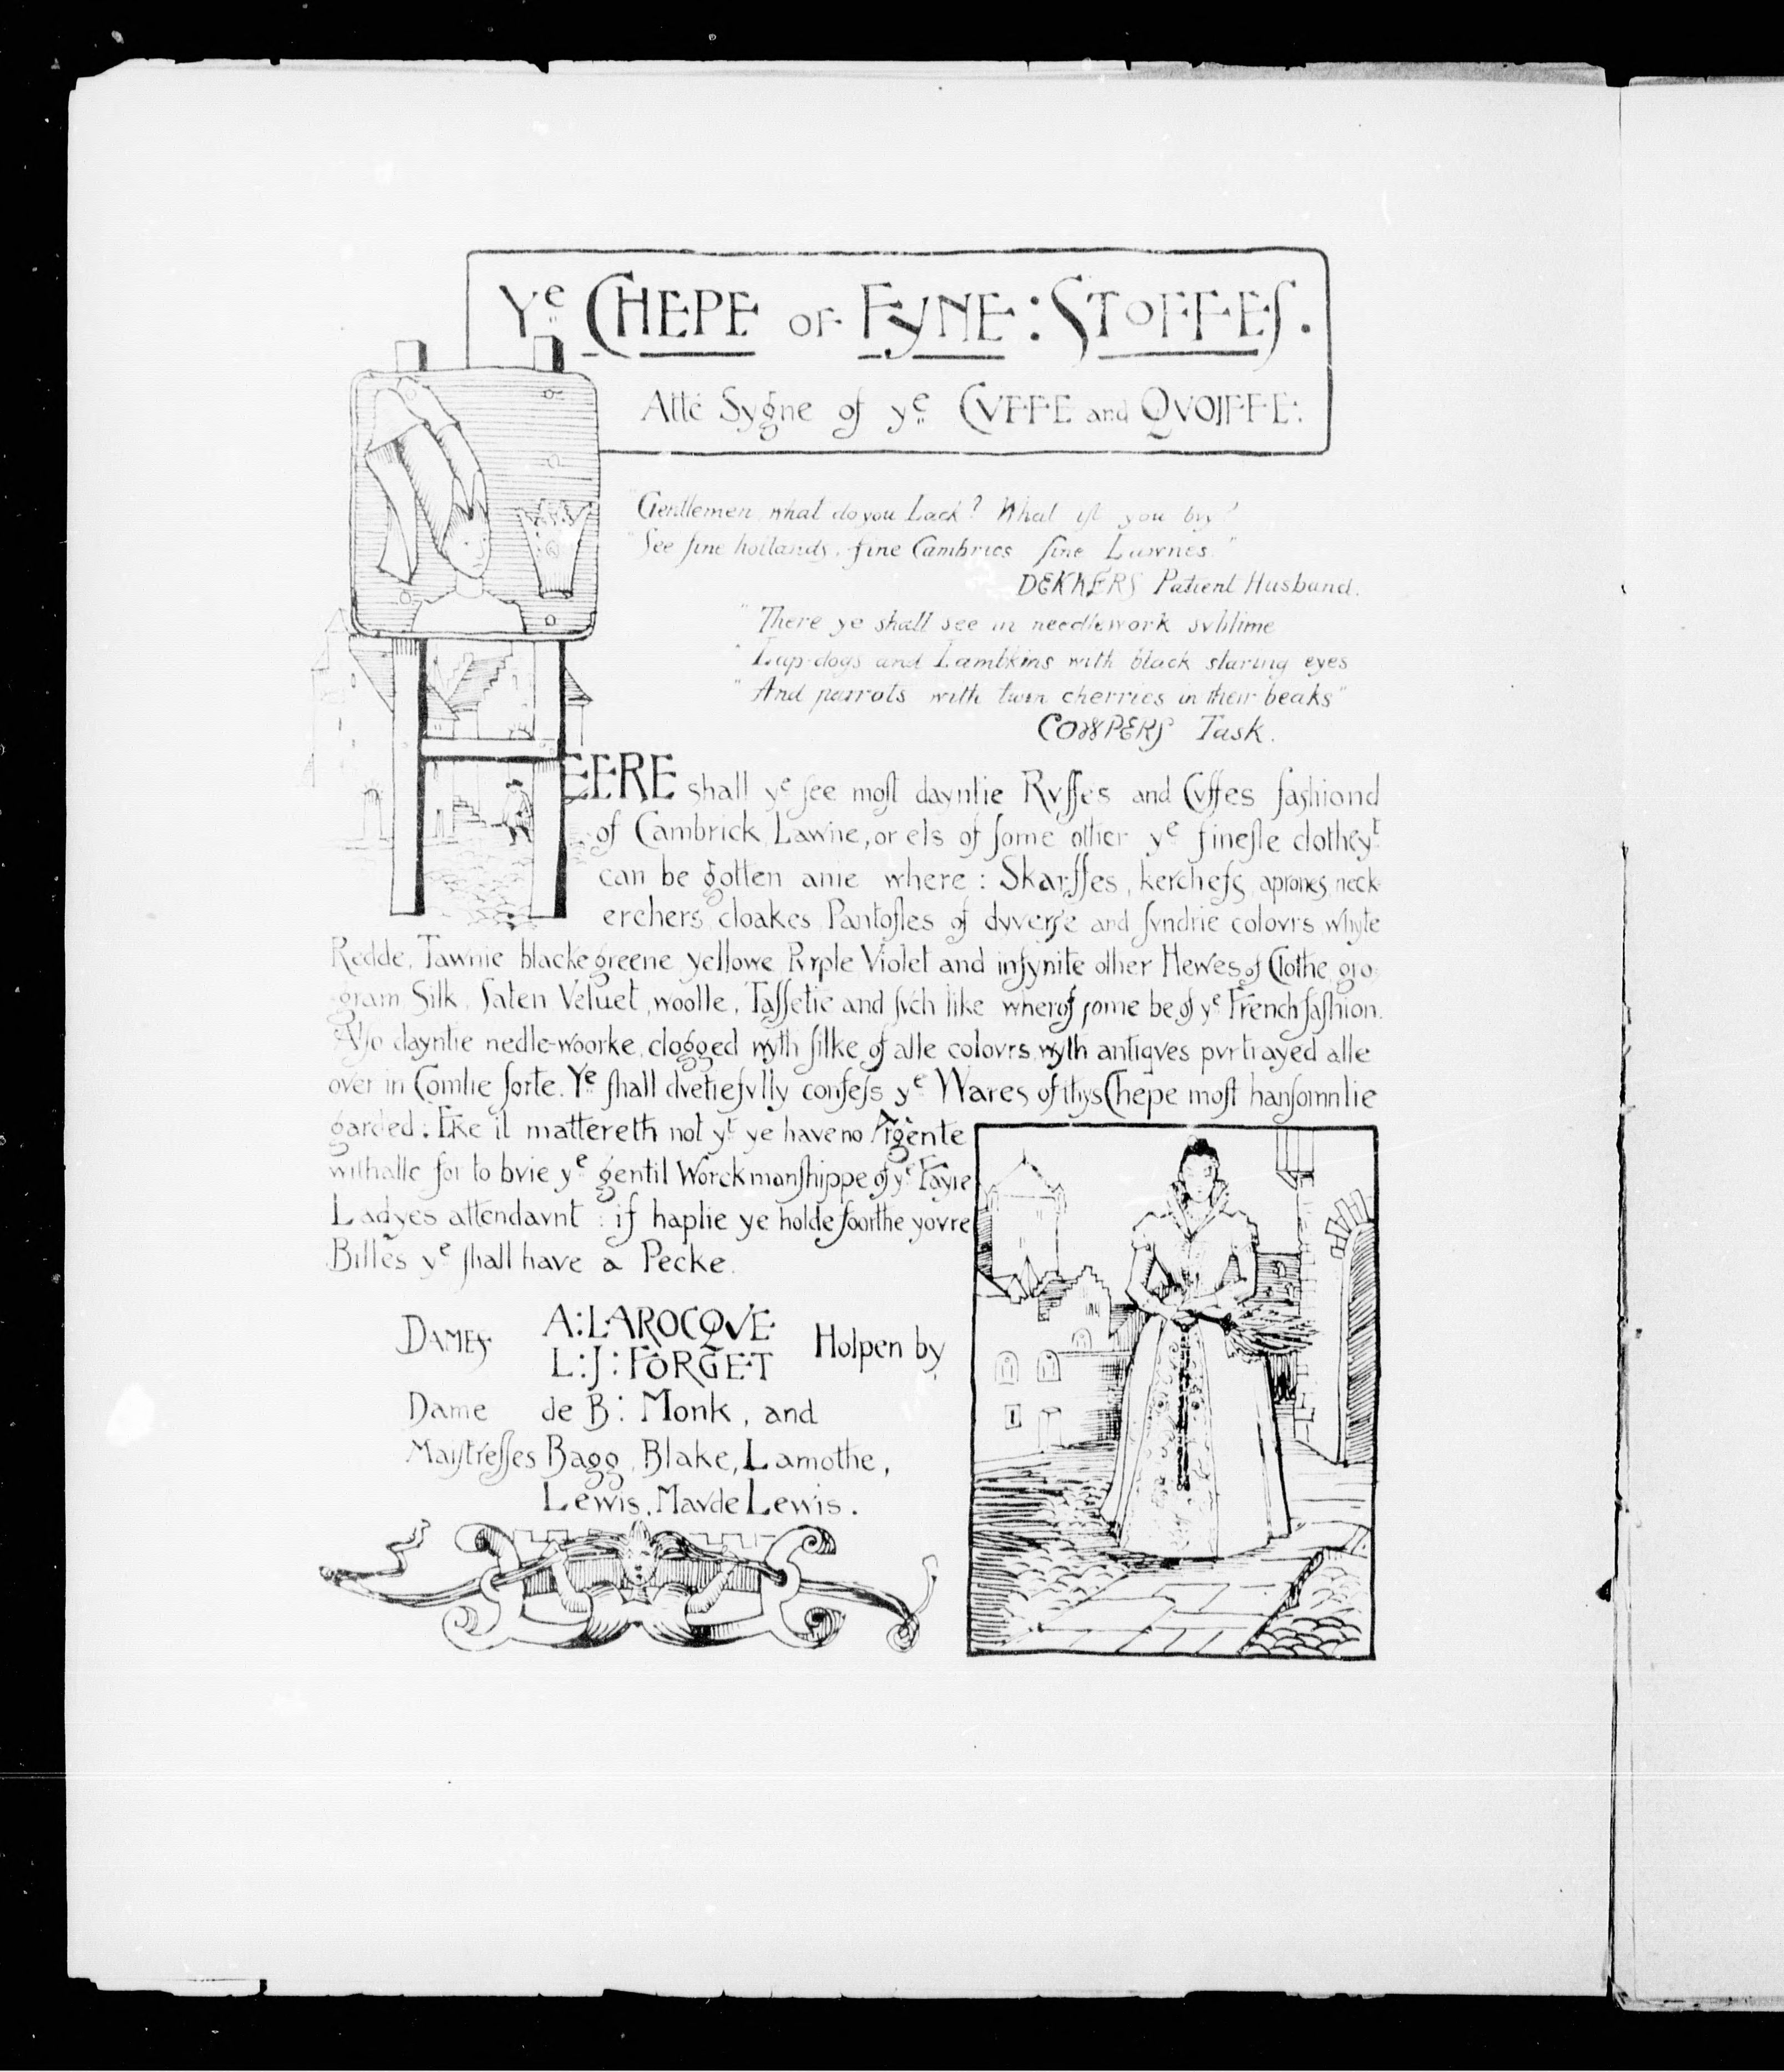 Ye CHEPE OF FYNE: STOFFES.
Atte Sygne of ye CVFFE and QVOIFFE:
"Gentlemen what do you Lack? What ist you bvy?
"See fine hollands, fine Cambrics fine Lawnes."
DEKKERS Patient Husband.
"There ye shall see in needlework svblime
"Lap-dogs and Lambkins with black staring eyes
"And parrots with twin cherries in their beaks"
COWPERS Task.
HEERE shall ye ſee moſt dayntie Rvffes and Cvffes faſhiond
of Cambrick, Lawne, or els of ſome other ye fineſte clothe yt
can be gotten anie where: Skarffes, kerchefs, aprones, neck-
erchers, cloakes, Pantofles of dyverſe and ſvndrie colovrs whyte
Redde, Tawnie blacke greene yellowe Pvrple Violet and infynite other Hewes of Clothe gro-
gram, Silk, ſaten Veluet, woolle, Taffetie and ſvch like wherof ſome be of ye French faſhion.
Alſo dayntie nedle-woorke, clogged wyth ſilke of alle colovrs, wyth antiqves pvrtrayed alle
over in Comlie ſorte. Ye ſhall dvetiefvlly confeſs ye Wares of thys Chepe moſt hanſomnlie
garded: Eke it mattereth not yt ye have no Argente
withalle for to bvie ye gentil Worckmanſhippe of ye Fayre
Ladyes attendavnt: if haplie ye holde foorthe yovre
Billes ye ſhall have a Pecke.
DAMES A: LAROCQVE
L: J: FORGET Holpen by
Dame de B: Monk, and
Maiſtreſſes Bagg, Blake, Lamothe,
Lewis, Mavde Lewis.